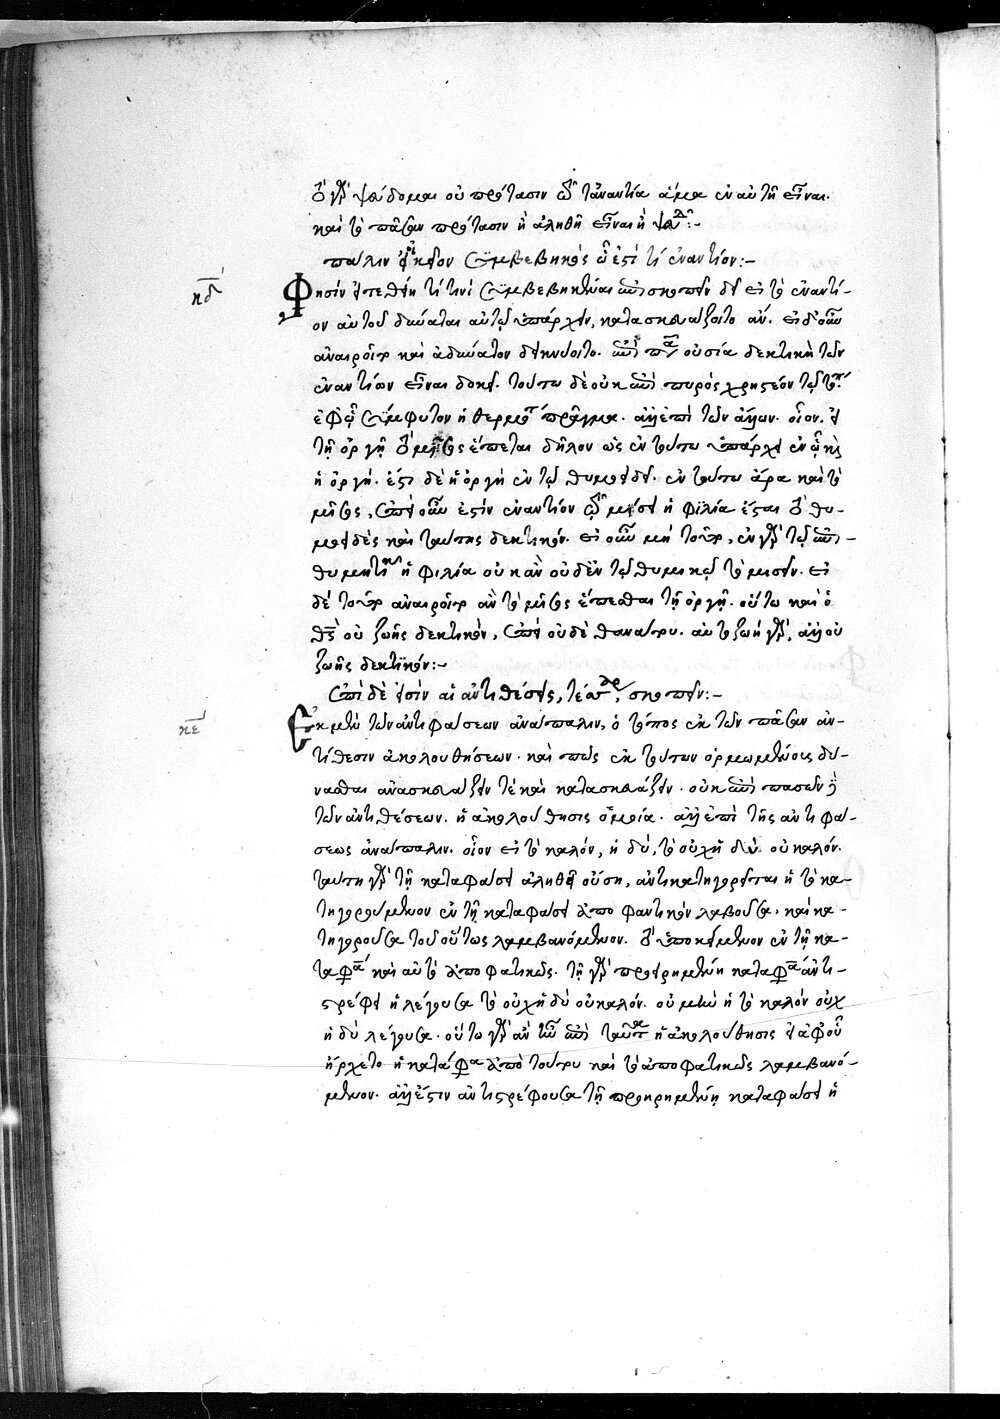 τὸ γὰρ ψεύδομαι οὐ πρότασιν ὥστε τἀναντία ἅμα ἐν αὐτῇ εἶναι.
καὶ τὸ πᾶσαν πρότασιν ἢ ἀληθῆ εἶναι ἢ ψευδῆ:-
πάλιν εἰ κεῖται συμβεβηκὸς ᾧ ἐστί τι ἐναντίον:-
κδ΄
Φησὶν εἰ τεθείη τί τινι συμβεβηκέναι ἐπισκοπεῖν δεῖ εἰ τὸ ἐναντί-
ον αὐτοῦ δύναται αὐτῷ ὑπάρχειν, κατασκευάζοιτο ἄν. εἰ δ' οὖν
ἀναιροῖτο καὶ ἀδύνατον δεικνύοιτο. ἐπεὶ πᾶσα οὐσία δεκτικὴ τῶν
ἐναντίων εἶναι δοκεῖ. τούτῳ δὲ οὐκ ἐπὶ πυρὸς χρηστέον τῷ τόπῳ
ἐφ' ᾧ σύμφυτον ἡ θερμότης πρᾶγμα. ἀλλ' ἐπὶ τῶν ἄλλων. οἷον. εἰ
τῇ ὀργῇ τὸ μῖσος ἕπεται δῆλον ὡς ἐν τούτῳ ὑπάρχει ἐν ᾧ καὶ
ἡ ὀργή. ἔστι δὲ ἡ ὀργὴ ἐν τῷ θυμοειδεῖ. ἐν τούτῳ ἄρα καὶ τὸ
μῖσος, ἐπεὶ οὖν ἐστὶν ἐναντίον τῷ μίσει ἡ φιλία ἔσται τὸ θυ-
μοειδὲς καὶ ταύτης δεκτικόν. εἰ οὖν μὴ τοῦτο, ἐν γὰρ τῷ ἐπι-
θυμητικῷ ἡ φιλία οὐκ ἂν οὐδ' ἐν τῷ θυμικῷ τὸ μισεῖν. εἰ
δὲ τοῦτο ἀναιροῖτο ἂν τὸ μῖσος ἕπεσθαι τῇ ὀργῇ. οὕτω καὶ ὁ
θεὸς οὐ ζωῆς δεκτικόν, ἐπεὶ οὐδὲ θανάτου. αὐτοζωὴ γάρ, ἀλλ' οὐ
ζωῆς δεκτικόν:-
ἐπεὶ δέ εἰσιν αἱ ἀντιθέσεις, τέσσαρες, σκοπεῖν:-
κε΄
Ἐκ μὲν τῶν ἀντιφάσεων ἀνάπαλιν, ὁ τόπος ἐκ τῶν πᾶσαν ἀν-
τίθεσιν ἀκολουθήσεων. καὶ πῶς ἐκ τούτων ὁρμωμένοις δύ-
νασθαι ἀνασκευάζειν τὲ καὶ κατασκευάζειν. οὐκ ἐπὶ πασῶν δὲ
τῶν ἀντιθέσεων. ἡ ἀκολούθησις ὁμοία. ἀλλ' ἐπὶ τῆς ἀντιφά-
σεως ἀνάπαλιν. οἷον εἰ τὸ καλόν, ἡδύ, τὸ οὐχ ἡδὺ οὐ καλόν.
ταύτῃ γὰρ τῇ καταφάσει ἀληθεῖ οὔσῃ, ἀντικατηγορεῖται ἡ τὸ κα-
τηγορούμενον ἐν τῇ καταφάσει ἀποφαντικὸν λαβοῦσα, καὶ κα-
τηγοροῦσα τοῦ οὕτως λαμβανόμενον. τὸ ὑποκείμενον ἐν τῇ κα-
ταφάσει καὶ αὐτὸ ἀποφατικῶς. τῇ γὰρ προειρημένῃ καταφάσει ἀντι-
στρέφει ἡ λέγουσα τὸ οὐχ ἡδὺ οὐ καλόν. οὐ μὲν ἡ τὸ καλὸν οὐχ
ἡδὺ λέγουσα. οὕτω γὰρ ἂν ἦν ἐπὶ ταὐτὰ ἡ ἀκολούθησις εἰ ἀφ' οὗ
ἤρχετο ἡ κατάφασις ἀπὸ τούτου καὶ τὸ ἀποφατικῶς λαμβανό-
μενον. ἀλλ' ἔστιν ἀντιστρέφουσα τῇ προειρημένῃ καταφάσει ἡ